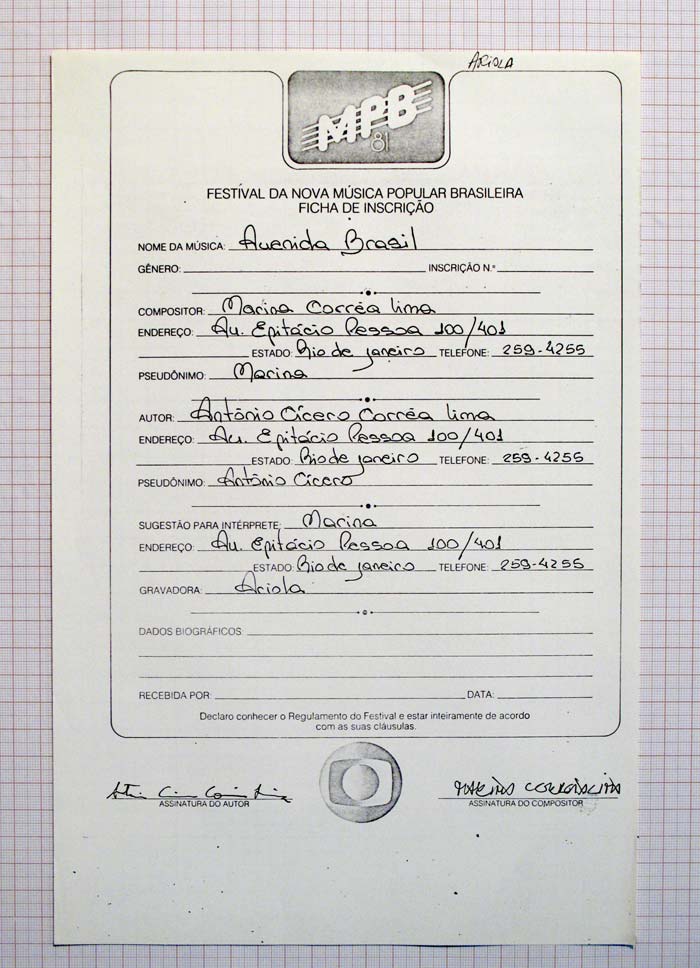 ARIOLA
MPB
81
FESTIVAL DA NOVA MÚSICA POPULAR BRASILEIRA
FICHA DE INSCRIÇÃO
NOME DA MÚSICA: Avenida Brasil
GÊNERO: INSCRIÇÃO N.º
COMPOSITOR: Marina Corrêa Lima
ENDEREÇO: Av. Epitácio Pessoa 100/401
ESTADO: Rio de janeiro TELEFONE: 259-4255
PSEUDÔNIMO: Marina
AUTOR: Antônio Cícero Corrêa Lima
ENDEREÇO: Av. Epitácio Pessoa 100/401
ESTADO: Rio de janeiro TELEFONE: 259-4255
PSEUDÔNIMO: Antônio Cícero
SUGESTÃO PARA INTÉRPRETE: Marina
ENDEREÇO: Av. Epitácio Pessoa 100/401
ESTADO: Rio de janeiro TELEFONE: 259-4255
GRAVADORA: Ariola
DADOS BIOGRÁFICOS:
RECEBIDA POR: DATA:
Declaro conhecer o Regulamento do Festival e estar inteiramente de acordo
com as suas cláusulas.
ASSINATURA DO AUTOR ASSINATURA DO COMPOSITOR